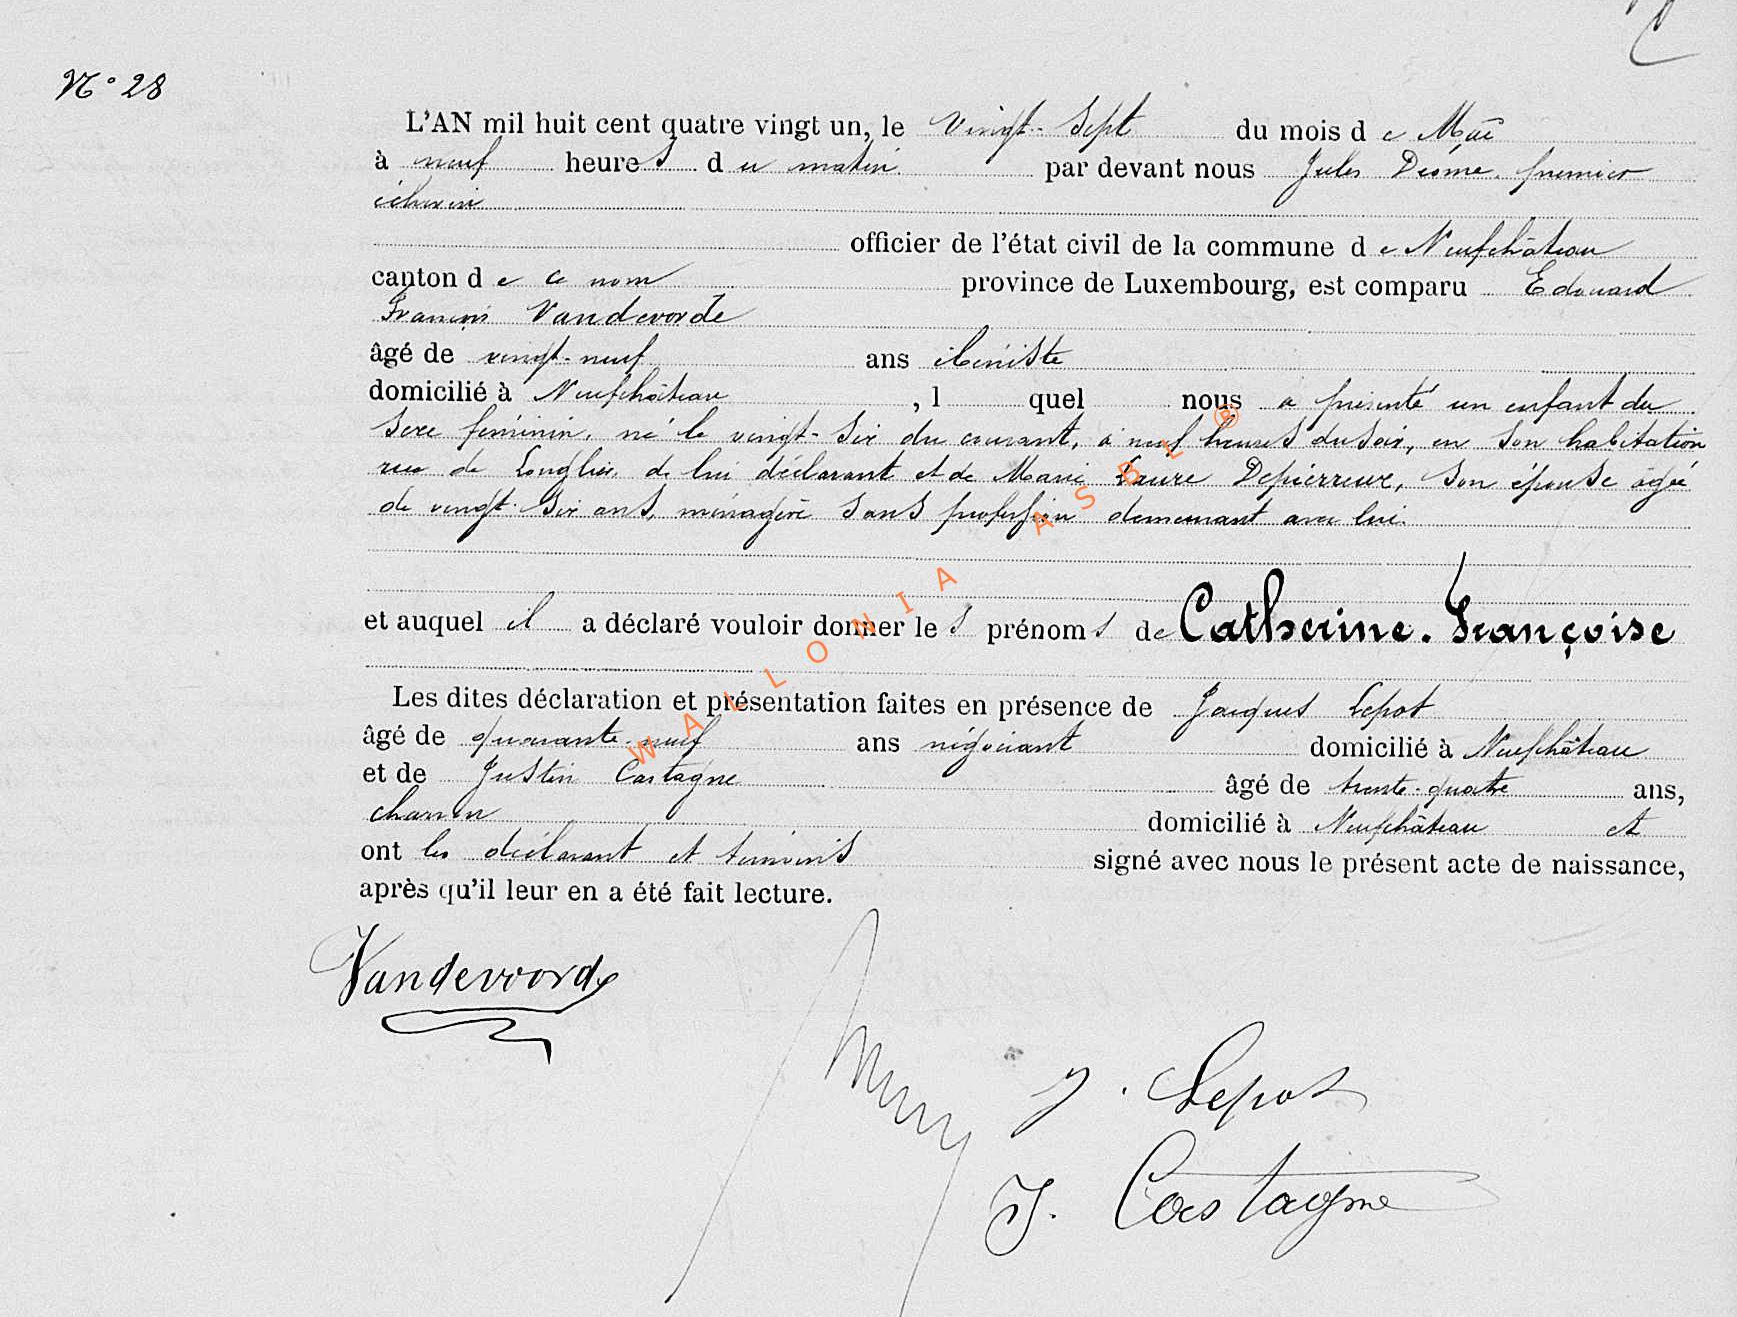 N° 28
L'AN mil huit cent quatre vingt un, le vingt-sept du mois de Mai
à neuf heures du matin par devant nous Jules premier
échevin
officier de l'état civil de la commune de Neufchâteau
canton de ce nom province de Luxembourg, est comparu Edouard
François Vandevorde
âgé de vingt-neuf ans ébéniste
domicilié à Neufchâteau, l quel nous a présenté un enfant du
sexe féminin, né le vingt-six du courant, à neuf heures du soir, en son habitation
rue de Longlier, de lui déclarant et de Marie Laure Depierreux, son épouse âgée
de vingt-six ans, ménagère sans profession demeurant avec lui.
et auquel il a déclaré vouloir donner les prénoms de Catherine-Françoise
Les dites déclaration et présentation faites en présence de Jacques Lepot
âgé de quarante-neuf ans négociant domicilié à Neufchâteau
et de Justin Castagne âgé de trente-quatre ans,
charron domicilié à Neufchâteau et
ont les déclarant et témoins signé avec nous le présent acte de naissance,
après qu'il leur en a été fait lecture.
Vandevoorde
J. Lepot
J. Castagne
WALLONIA ASBL ®